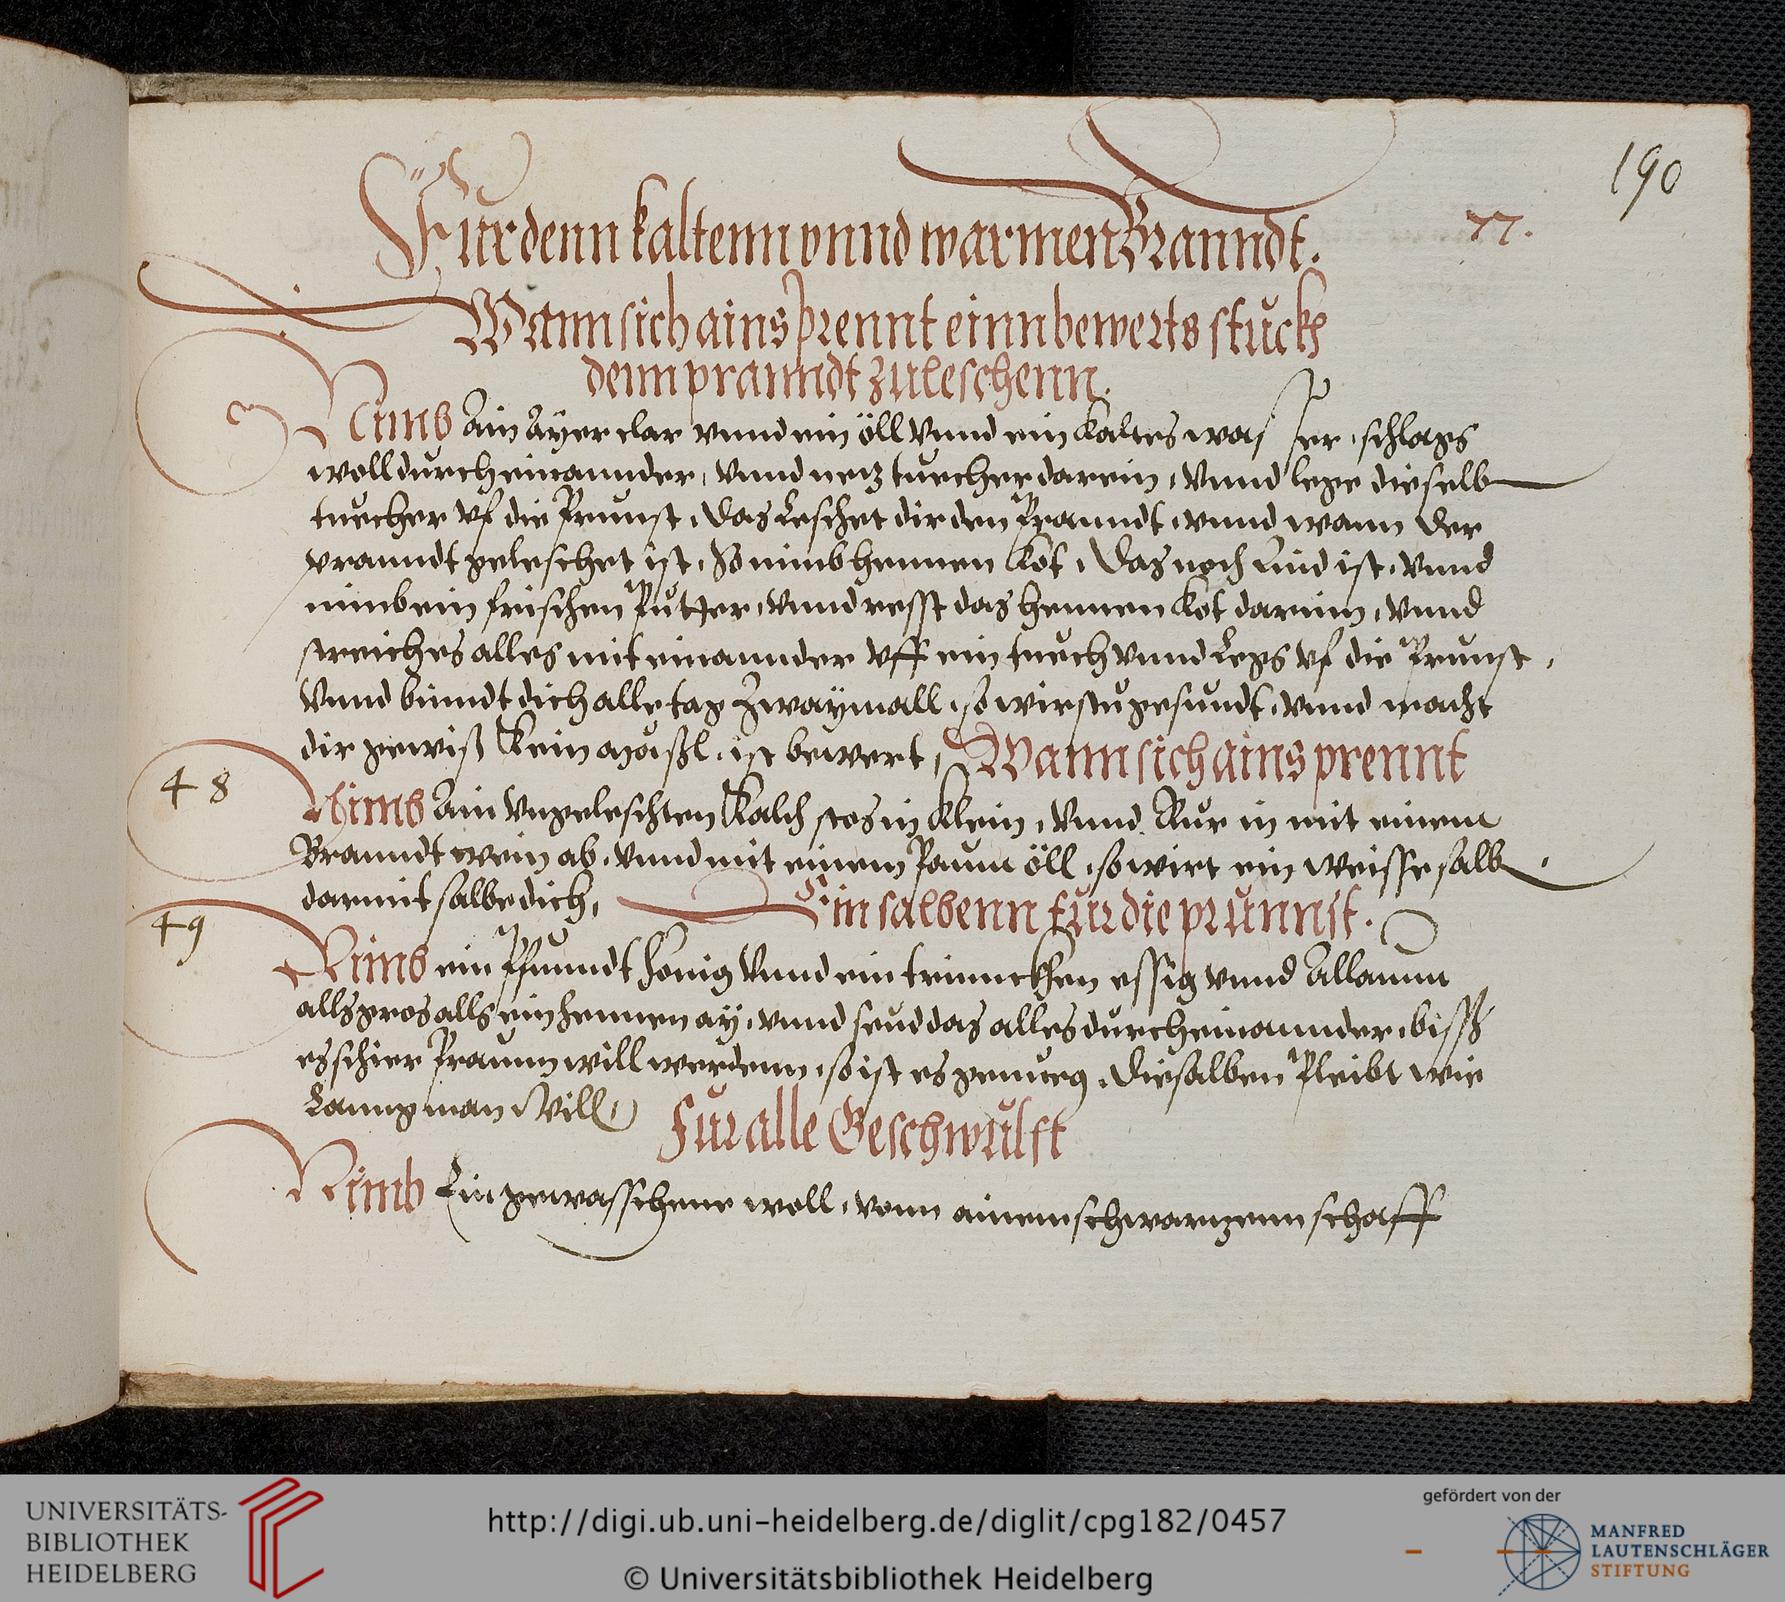 190
77.
Fur denn kaltenn vnnd warmen Branndt.
Wann sich ains prennt einn bewerts stuckh
denn pranndt zuleschenn.
Nimb Ain Ayer clar vnnd ein öll vnnd ein kaltes wasser, schlags
woll durch einannder, vnnd netz tuecher darein, vnnd lege dieselb
tuecher vf die Prunst, das Leschet dir den Pranndt, vnnd wann der
pranndt geleschet ist, So nimb hennen kot, das noch lind ist, vnnd
nimb ein frischen Putter, vnnd resst das hennen kot darinn, vnnd
streich es alles mit einannder vff ein tuech vnnd Legs vf die Prunst,
vnnd bindt dich alle tag Zwaymall, so wirstu gesundt, vnnd macht
dir gewiß kein maßl, ist bewert, Wann sich ains prennt
48
Nimb Ain vngeleschten Kalch stos in klein, vnnd Rur in mit einem
Branndt wein ab, vnnd mit einem Paum öll, so wirt ein weisse salb
darmit salbe dich, Ein salbenn fur die prunnst.
49
Nimb ein Pfunndt honig vnnd ein trinnckhen essig vnnd Allaunn
alls gros alls ein hennen ay, vnnd seud das alles durcheinannder, biss
es schier Praunn will werdenn, so ist es genueg, die salben Pleibt wie
Lanng man will
Fur alle Geschwulst
Nimb Ein gewasschene woll, vonn ainem schwarzenn schaff
UNIVERSITÄTS-
BIBLIOTHEK
HEIDELBERG
http://digi.ub.uni-heidelberg.de/diglit/cpg182/0457
© Universitätsbibliothek Heidelberg
gefördert von der
MANFRED
LAUTENSCHLÄGER
STIFTUNG